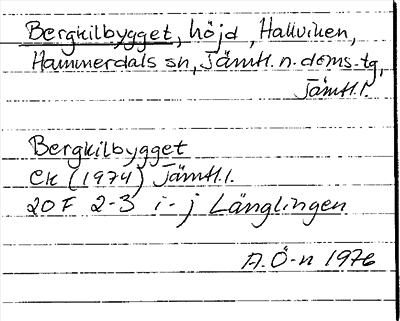 Bergkilbygget, höjd, Hallviken,
Hammerdals sn, Jämtl. n. doms. tg,
Jämtl.l.
Bergkilbygget
EK (1974) Jämtl.l.
20F 2-3 i-j Länglingen
A.Ö-n 1976